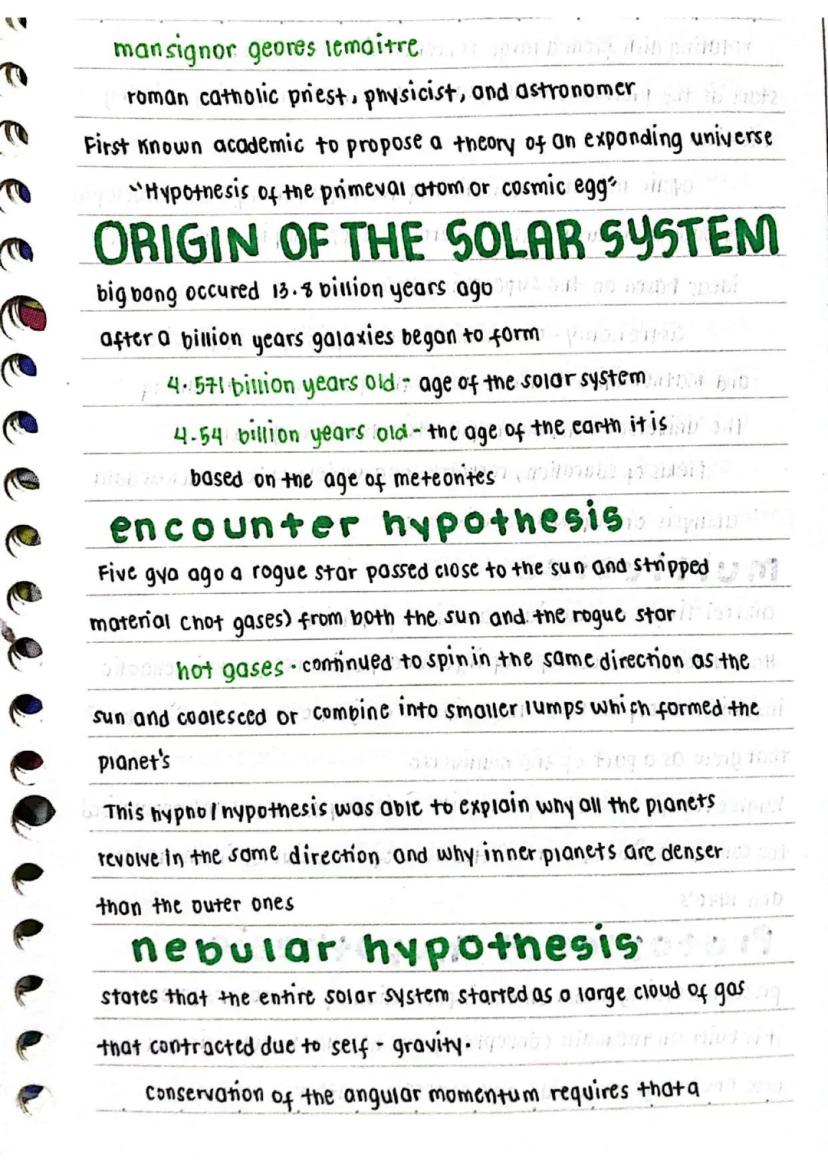 mansignor geores lemaitre
roman catholic priest, physicist, and astronomer
First known academic to propose a theory of an expanding universe
"Hypothesis of the primeval atom or cosmic egg"
ORIGIN OF THE SOLAR SYSTEM
big bang occured 13.8 billion years ago
after a billion years galaxies began to form
4.571 billion years old - age of the solar system
4.54 billion years old - the age of the earth it is
based on the age of meteorites
encounter hypothesis
Five gya ago a rogue star passed close to the sun and stripped
material (hot gases) from both the sun and the rogue star
hot gases - continued to spin in the same direction as the
sun and coalesced or combine into smaller lumps which formed the
planet's
This hypno / hypothesis was able to explain why all the planets
revolve in the same direction and why inner planets are denser
than the outer ones
nebular hypothesis
states that the entire solar system started as a large cloud of gas
that contracted due to self - gravity.
Conservation of the angular momentum requires that a